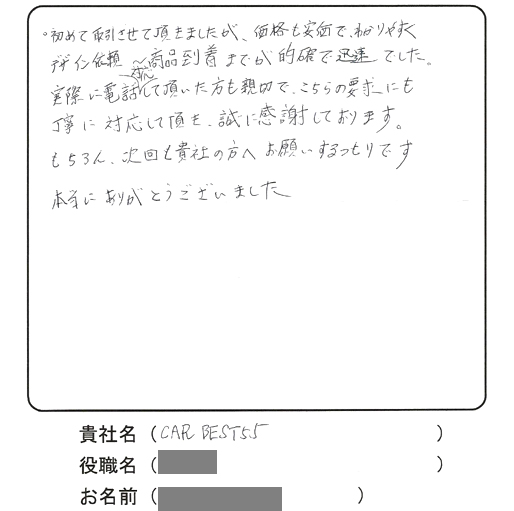 ・初めて取引させて頂きましたが、価格も安価で、わかりやすく
デザイン依頼〜商品到着までが的確で迅速でした。
実際に電話対応して頂いた方も親切で、こちらの要求にも
丁寧に対応して頂き、誠に感謝しております。
もちろん、次回も貴社の方へお願いするつもりです
本当にありがとうございました
貴社名(CAR BEST55)
役職名( )
お名前( )